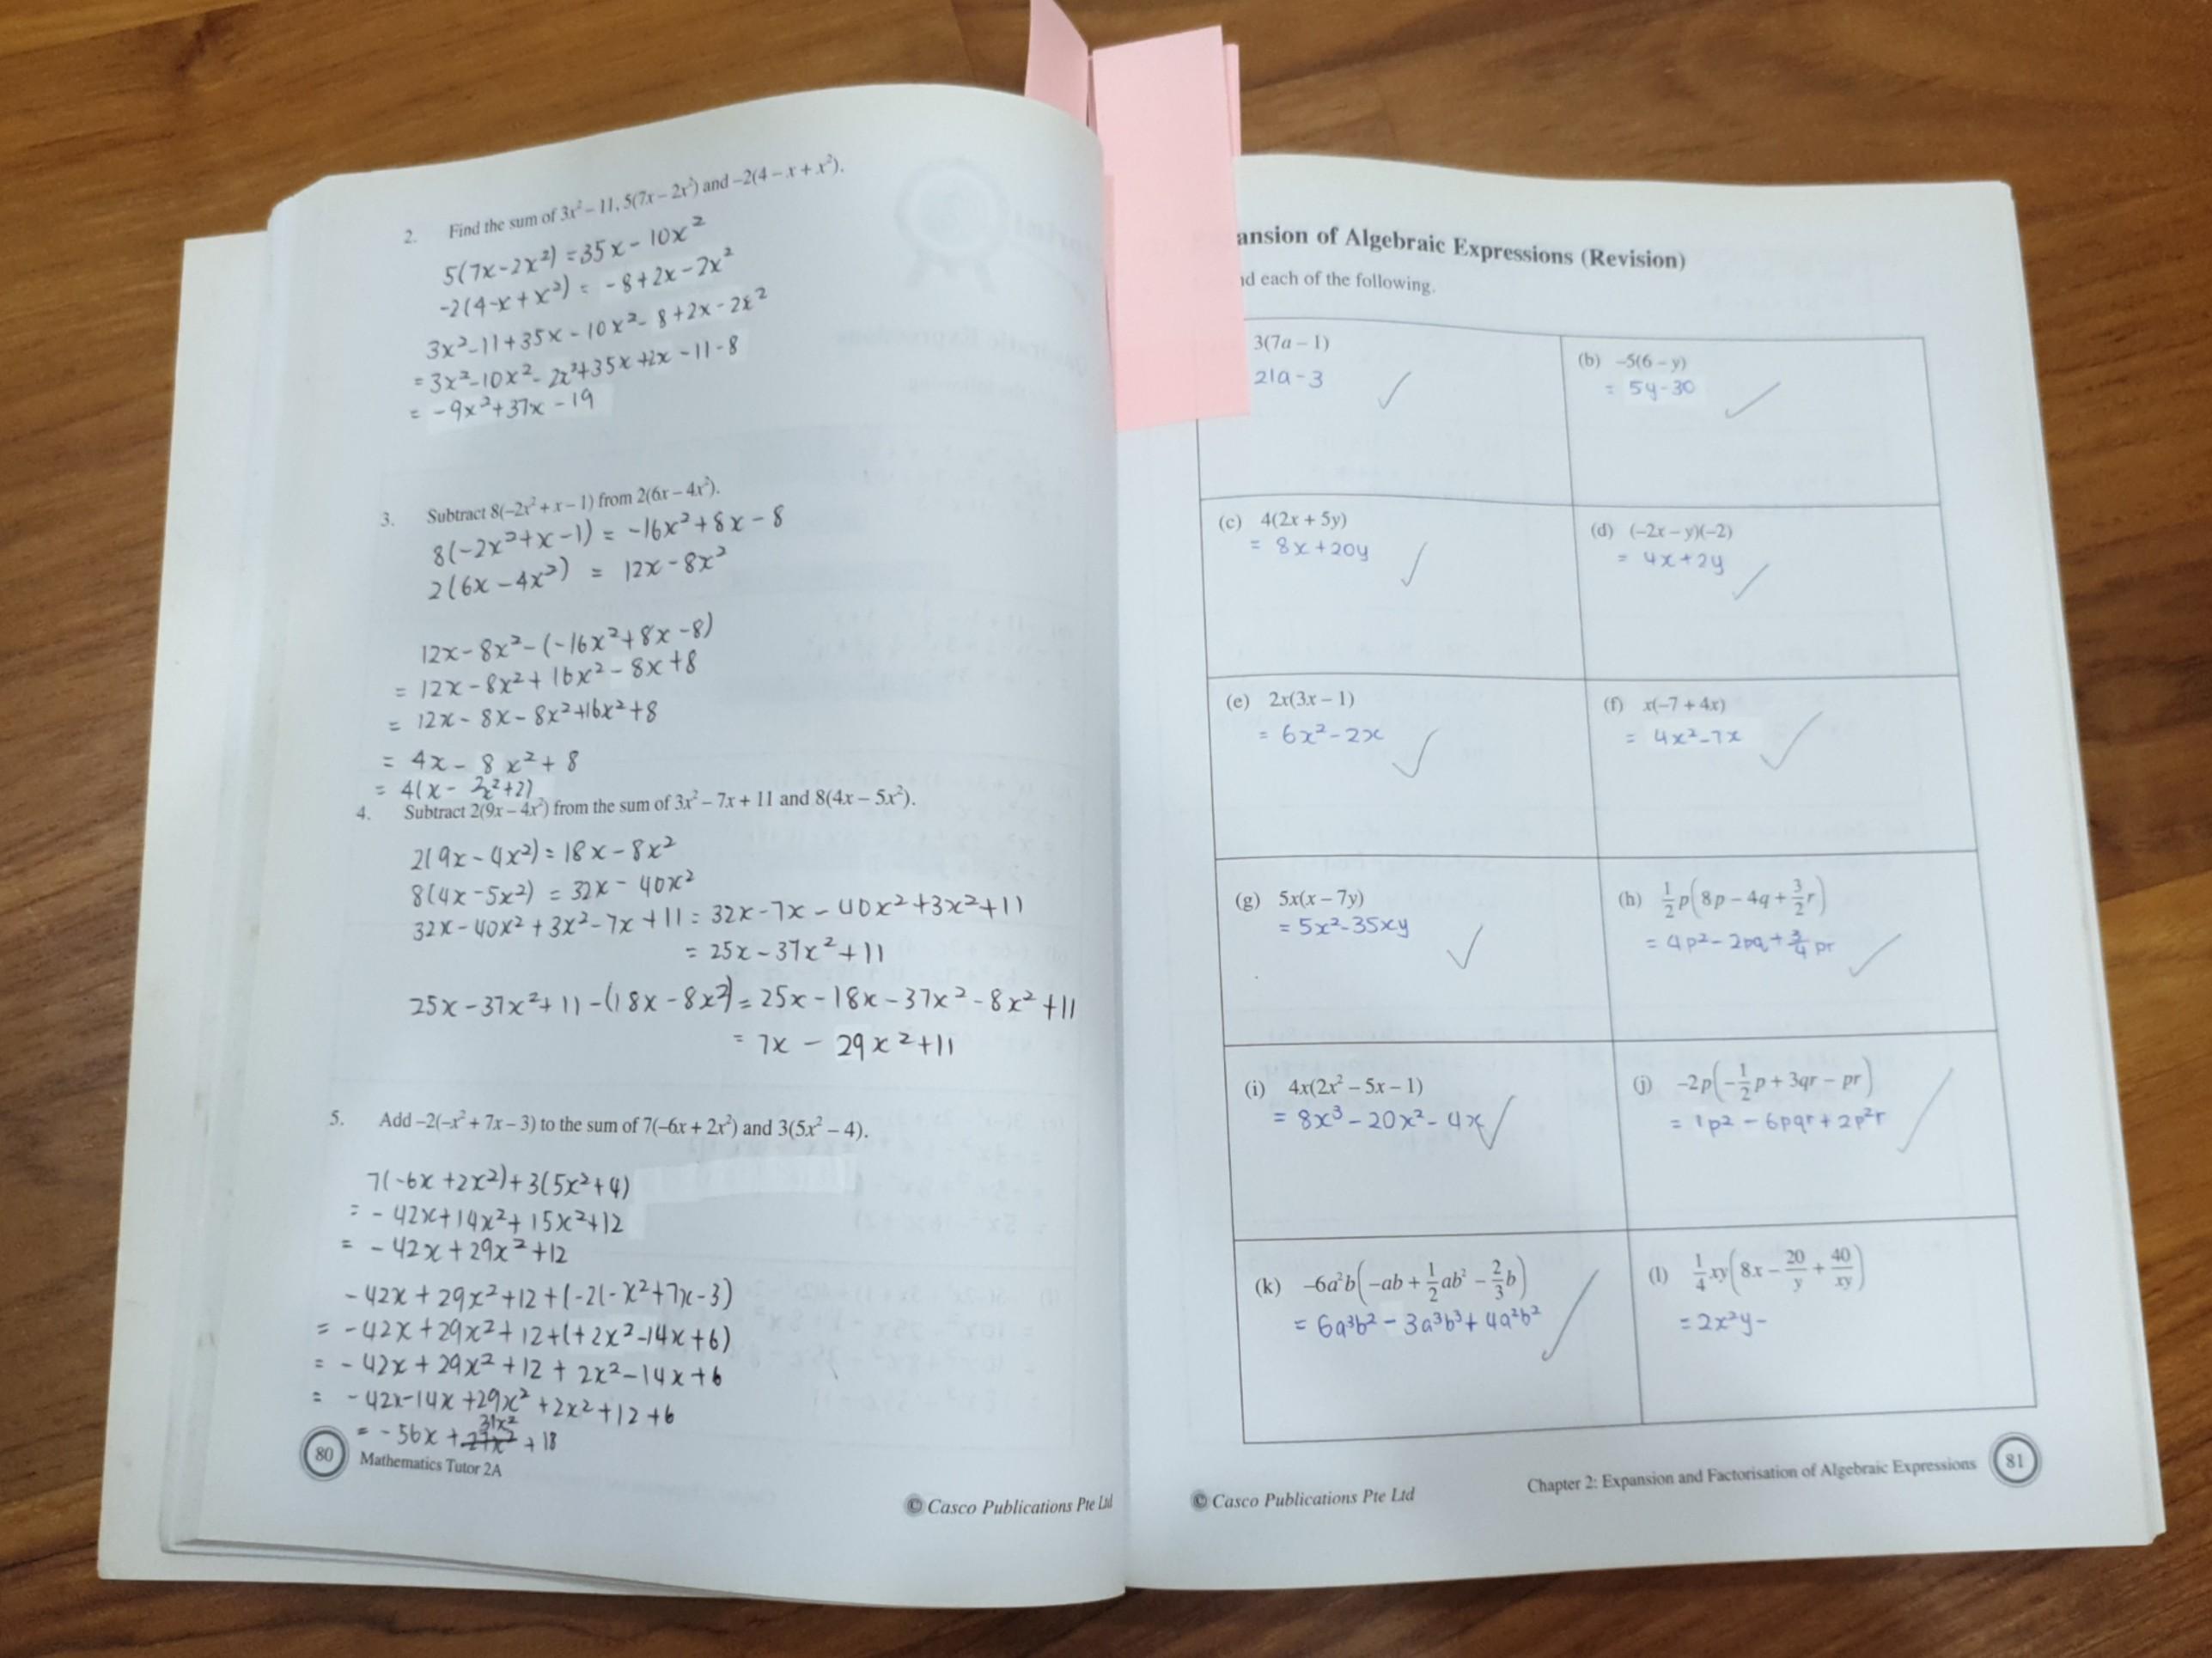 2. Find the sum of 3x² – 11, 5(7x – 2x²) and –2(4 – x + x²).
5(7x-2x²) = 35x - 10x²
-2(4-x+x²) = -8+2x-2x²
3x²-11+35x-10x²-8+2x-2x²
= 3x²-10x²-2x²+35x+2x-11-8
= -9x²+37x-19
3. Subtract 8(–2x² + x – 1) from 2(6x – 4x²).
8(-2x²+x-1) = -16x²+8x-8
2(6x-4x²) = 12x-8x²
12x-8x²-(-16x²+8x-8)
= 12x-8x²+16x²-8x+8
= 12x-8x-8x²+16x²+8
= 4x - 8x²+8
= 4(x - 2x²+2)
4. Subtract 2(9x – 4x²) from the sum of 3x² – 7x + 11 and 8(4x – 5x²).
2(9x-4x²) = 18x-8x²
8(4x-5x²) = 32x-40x²
32x-40x²+3x²-7x+11 = 32x-7x-40x²+3x²+11
= 25x-37x²+11
25x-37x²+11-(18x-8x²) = 25x-18x-37x²-8x²+11
= 7x - 29x²+11
5. Add –2(–x² + 7x – 3) to the sum of 7(–6x + 2x²) and 3(5x² – 4).
7(-6x+2x²)+3(5x²+4)
= -42x+14x²+15x²+12
= -42x+29x²+12
-42x+29x²+12+(-2(-x²+7x-3)
= -42x+29x²+12+(+2x²-14x+6)
= -42x+29x²+12+2x²-14x+6
= -42x-14x+29x²+2x²+12+6
31x²
= -56x + +18
80 Mathematics Tutor 2A
© Casco Publications Pte Ltd
ansion of Algebraic Expressions (Revision)
nd each of the following.
3(7a – 1)
21a-3
(b) –5(6 – y)
= 5y-30
(c) 4(2x + 5y)
= 8x+20y
(d) (–2x – y)(–2)
= 4x+2y
(e) 2x(3x – 1)
= 6x²-2x
(f) x(–7 + 4x)
= 4x²-7x
(g) 5x(x – 7y)
= 5x²-35xy
(h) 1/2p(8p – 4q + 3/2r)
= 4p²-2pq+3/4pr
(i) 4x(2x² – 5x – 1)
= 8x³-20x²-4x
(j) –2p(–1/2p + 3qr – pr)
= 1p²-6pqr+2p²r
(k) –6a²b(–ab + 1/2ab² – 2/3b)
= 6a³b²-3a³b³+4a²b²
(l) 1/4xy(8x – 20/y + 40/xy)
= 2x²y-
© Casco Publications Pte Ltd
Chapter 2: Expansion and Factorisation of Algebraic Expressions 81